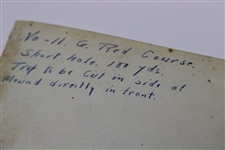 No-11. G. Red Course.
Short hole. 180 yds.
Trap to be Cut in side of
Mound directly in front.